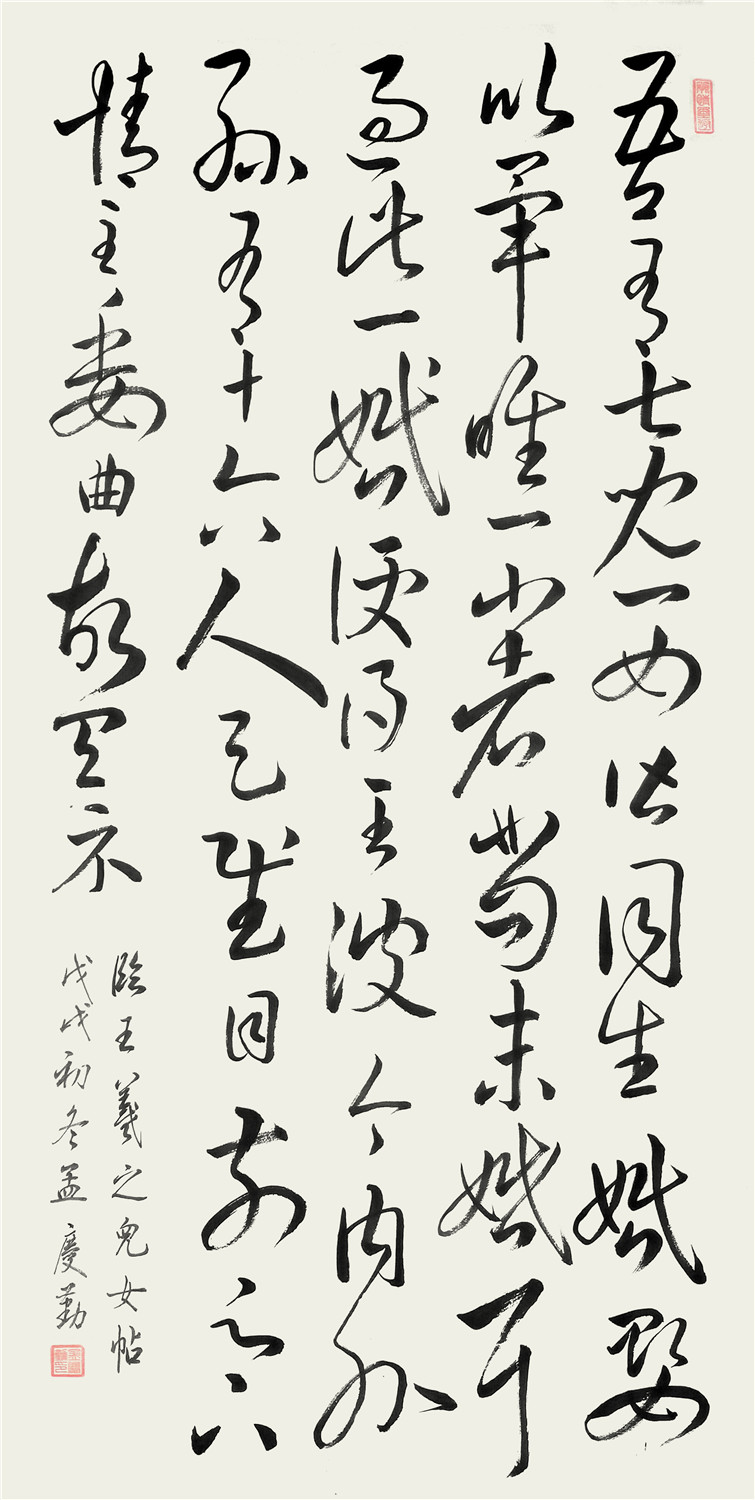 吾有七兒一女皆同生婚娶
以畢唯一小者尚未婚耳
過此一婚便得至彼今內外
孫有十六人足慰目前足下
情至委曲故具示
臨王羲之兒女帖
戊戌初冬孟慶勤